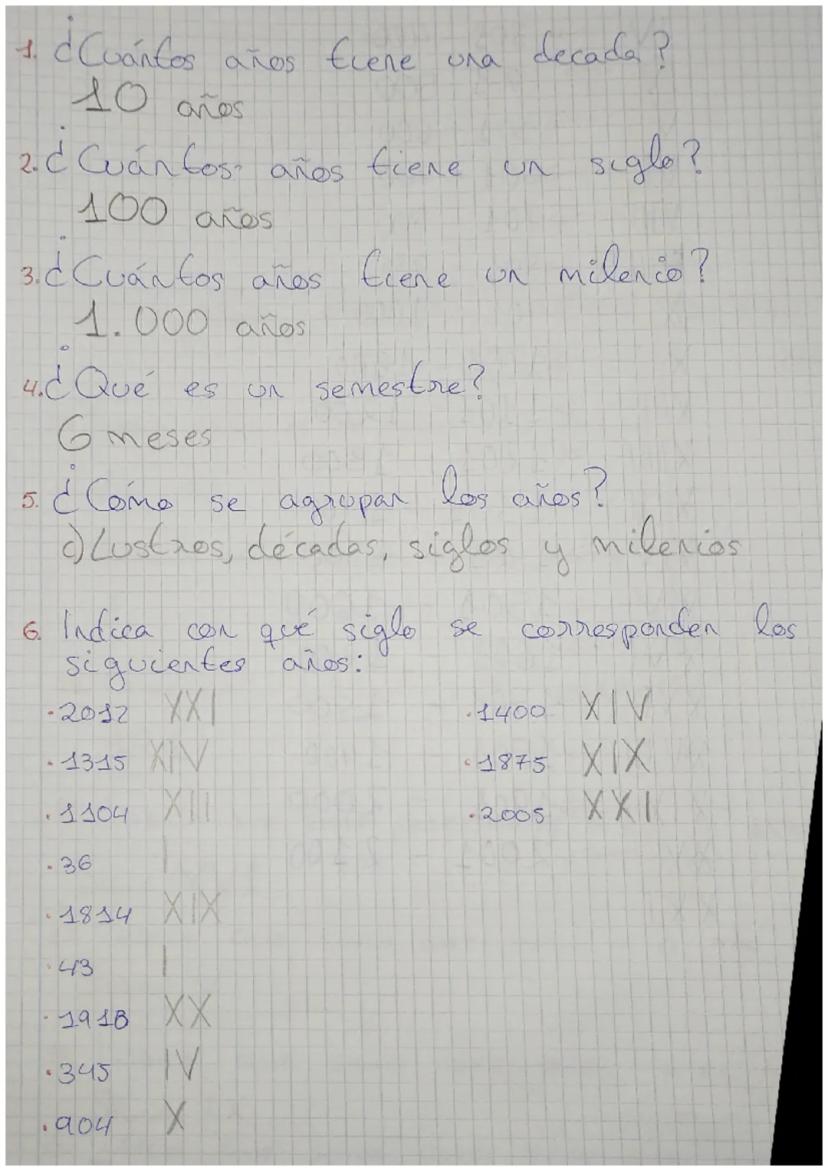 1. ¿Cuántos años tiene una decada?
10 años
2. ¿Cuántos años tiene un siglo?
100 años
3. ¿Cuántos años tiene un milenio?
1.000 años
4. ¿Qué es un semestre?
6 meses
5. ¿Cómo se agrupan los años?
c) Lustros, décadas, siglos y milenios
6. Indica con qué siglo se corresponden los
siguientes años:
·2012 XXI
·1315 XIV
·1104 XII
·36 I
·1814 XIX
·43 I
·1918 XX
·345 IV
·904 X
·1400 XIV
·1875 XIX
·2005 XXI